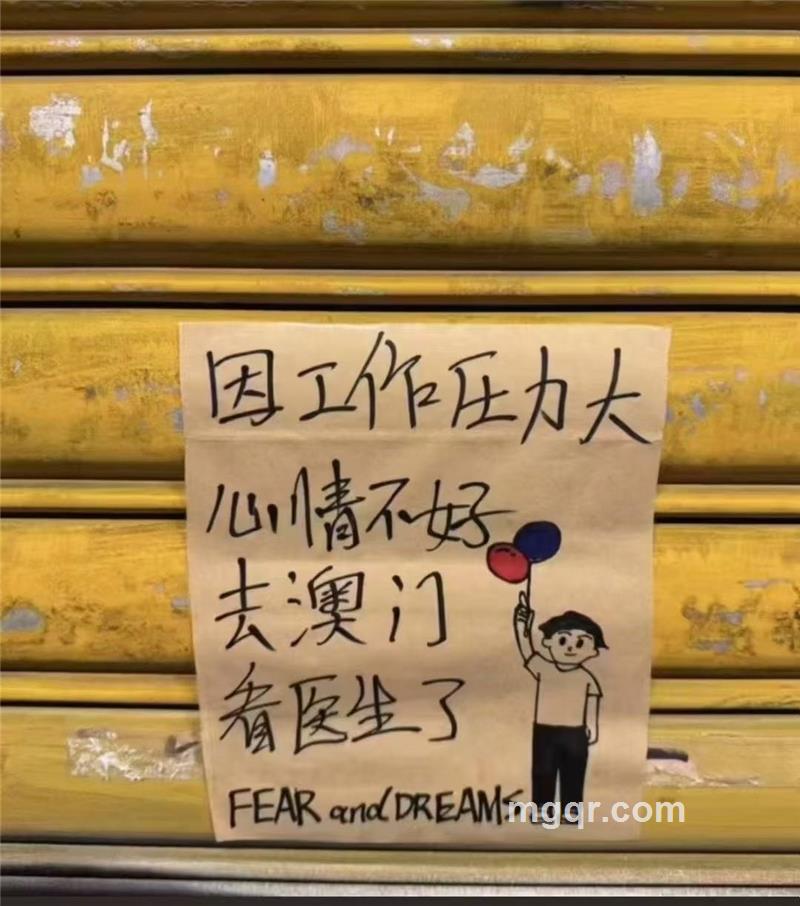 因工作压力大
心情不好
去澳门
看医生了
FEAR and DREAMS
mgqr.com